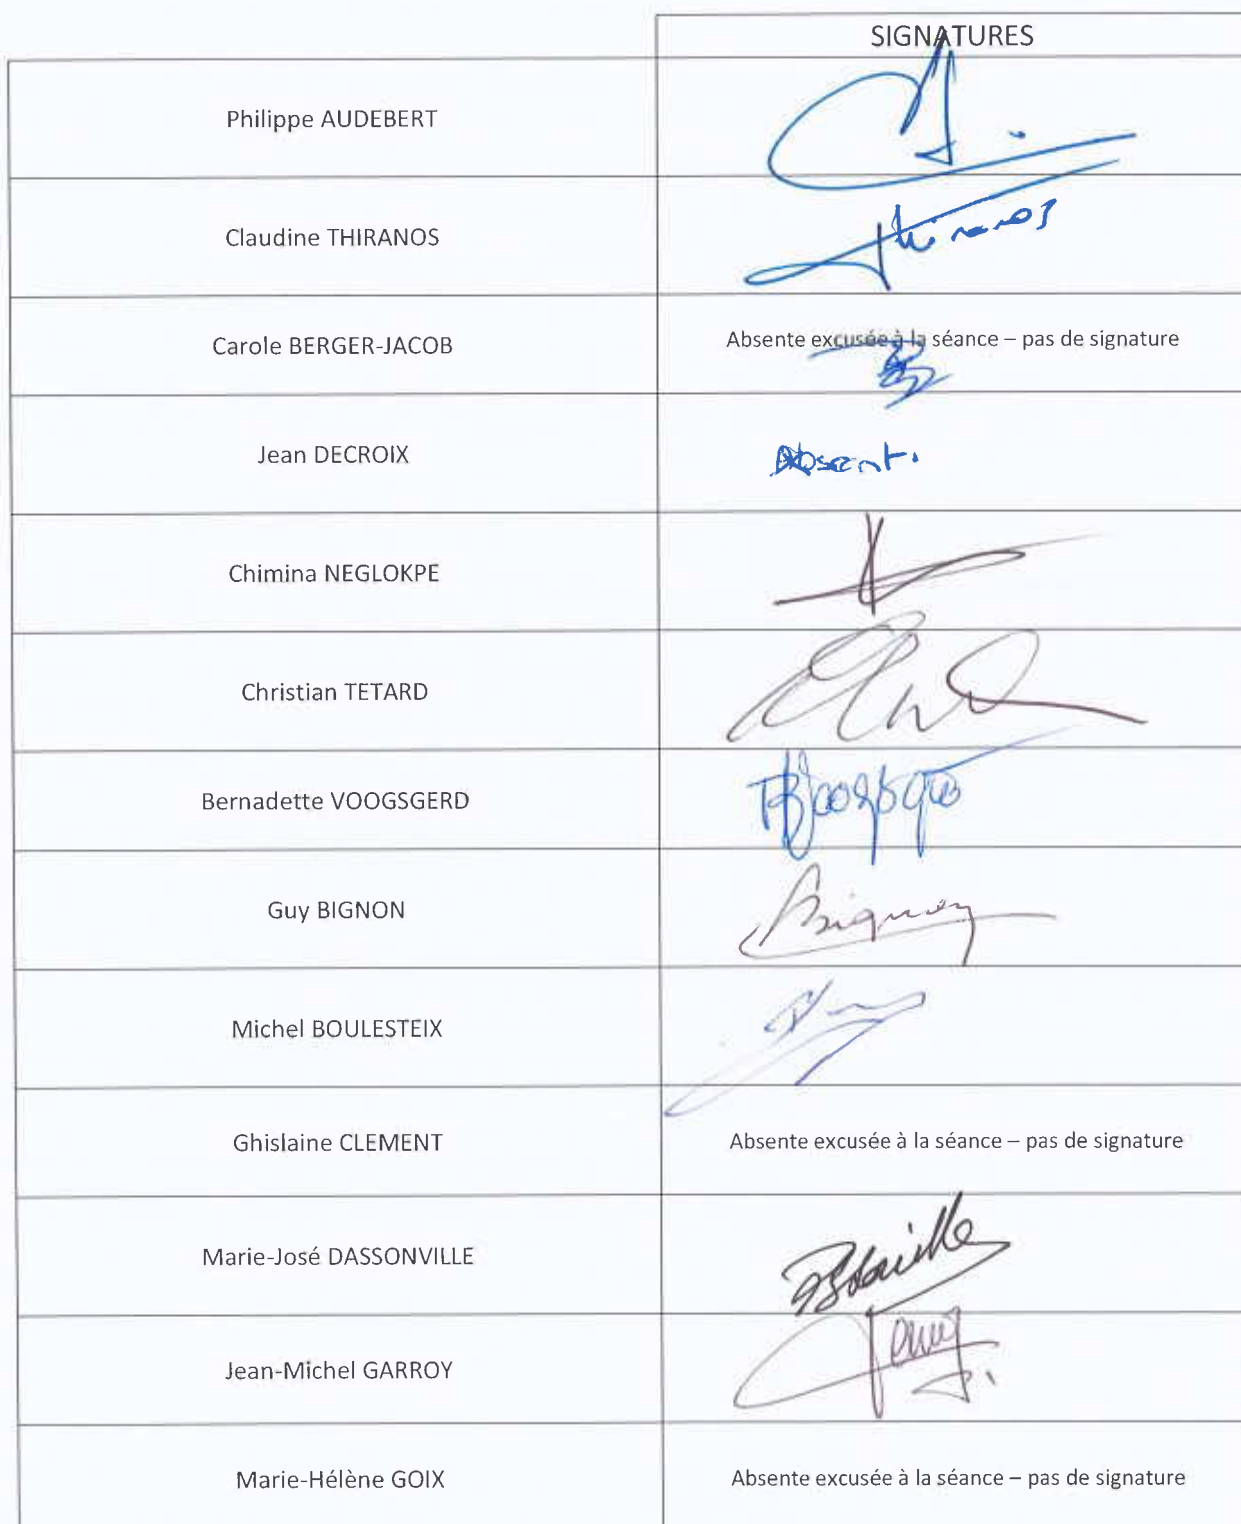 SIGNATURES
Philippe AUDEBERT
Claudine THIRANOS
Thiranos
Carole BERGER-JACOB
Absente excusée à la séance – pas de signature
Jean DECROIX
Absent.
Chimina NEGLOKPE
Christian TETARD
Bernadette VOOGSGERD
Guy BIGNON
Bignon
Michel BOULESTEIX
Ghislaine CLEMENT
Absente excusée à la séance – pas de signature
Marie-José DASSONVILLE
Jean-Michel GARROY
Marie-Hélène GOIX
Absente excusée à la séance – pas de signature